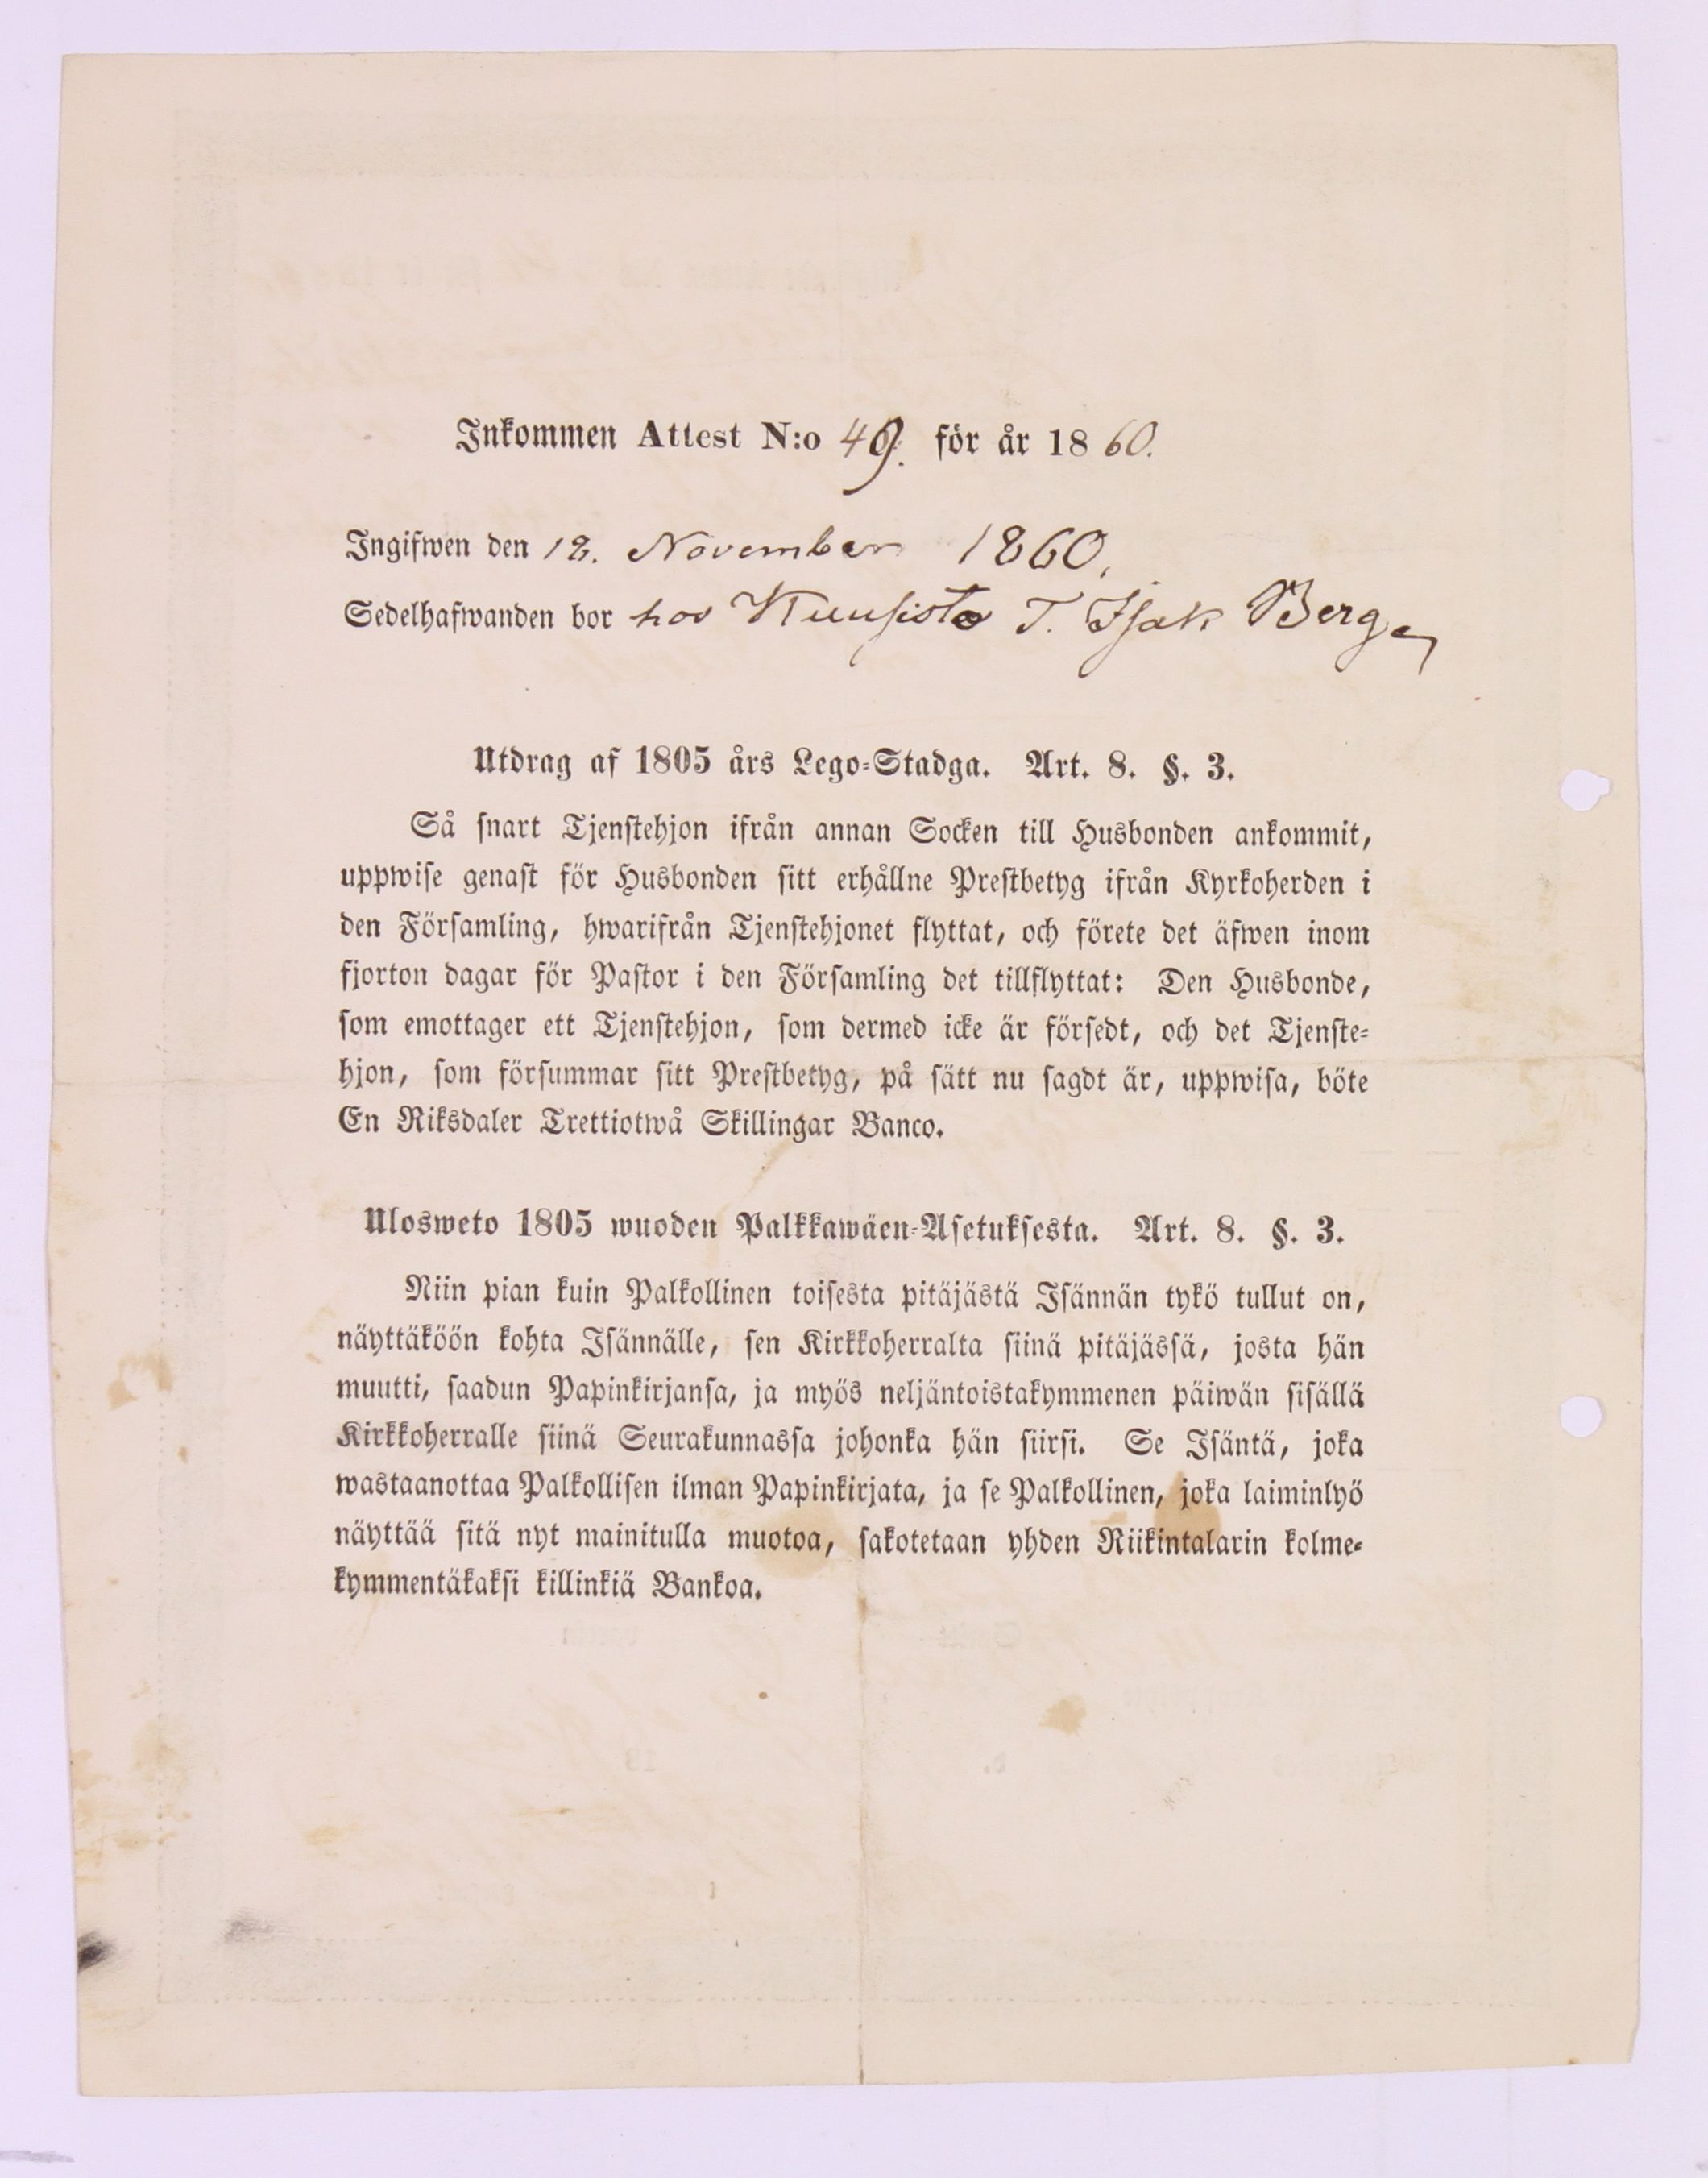 Inkommen Attest N:o 49. för år 1860.
Ingifwen den 12. November 1860.
Sedelhafwanden bor hos Kuusisto T. Isak Berg
Utdrag af 1805 års Lego-Stadga. Art. 8. §. 3.
Så snart Tjenstehjon ifrån annan Socken till Husbonden ankommit,
uppwise genast för Husbonden sitt erhållne Prestbetyg ifrån Kyrkoherden i
den Församling, hwarifrån Tjenstehjonet flyttat, och förete det äfwen inom
fjorton dagar för Pastor i den Församling det tillflyttat: Den Husbonde,
som emottager ett Tjenstehjon, som dermed icke är försedt, och det Tjenste-
hjon, som försummar sitt Prestbetyg, på sätt nu sagdt är, uppwisa, böte
En Riksdaler Trettiotwå Skillingar Banco.
Ulosweto 1805 wuoden Palkkawäen-Asetuksesta. Art. 8. §. 3.
Niin pian kuin Palkollinen toisesta pitäjästä Isännän tykö tullut on,
näyttäköön kohta Isännälle, sen Kirkkoherralta siinä pitäjässä, josta hän
muutti, saadun Papinkirjansa, ja myös neljäntoistakymmenen päiwän sisällä
Kirkkoherralle siinä Seurakunnassa johonka hän siirsi. Se Isäntä, joka
wastaanottaa Palkollisen ilman Papinkirjata, ja se Palkollinen, joka laiminlyö
näyttää sitä nyt mainitulla muotoa, sakotetaan yhden Riikintalarin kolme-
kymmentäkaksi killinkiä Bankoa.